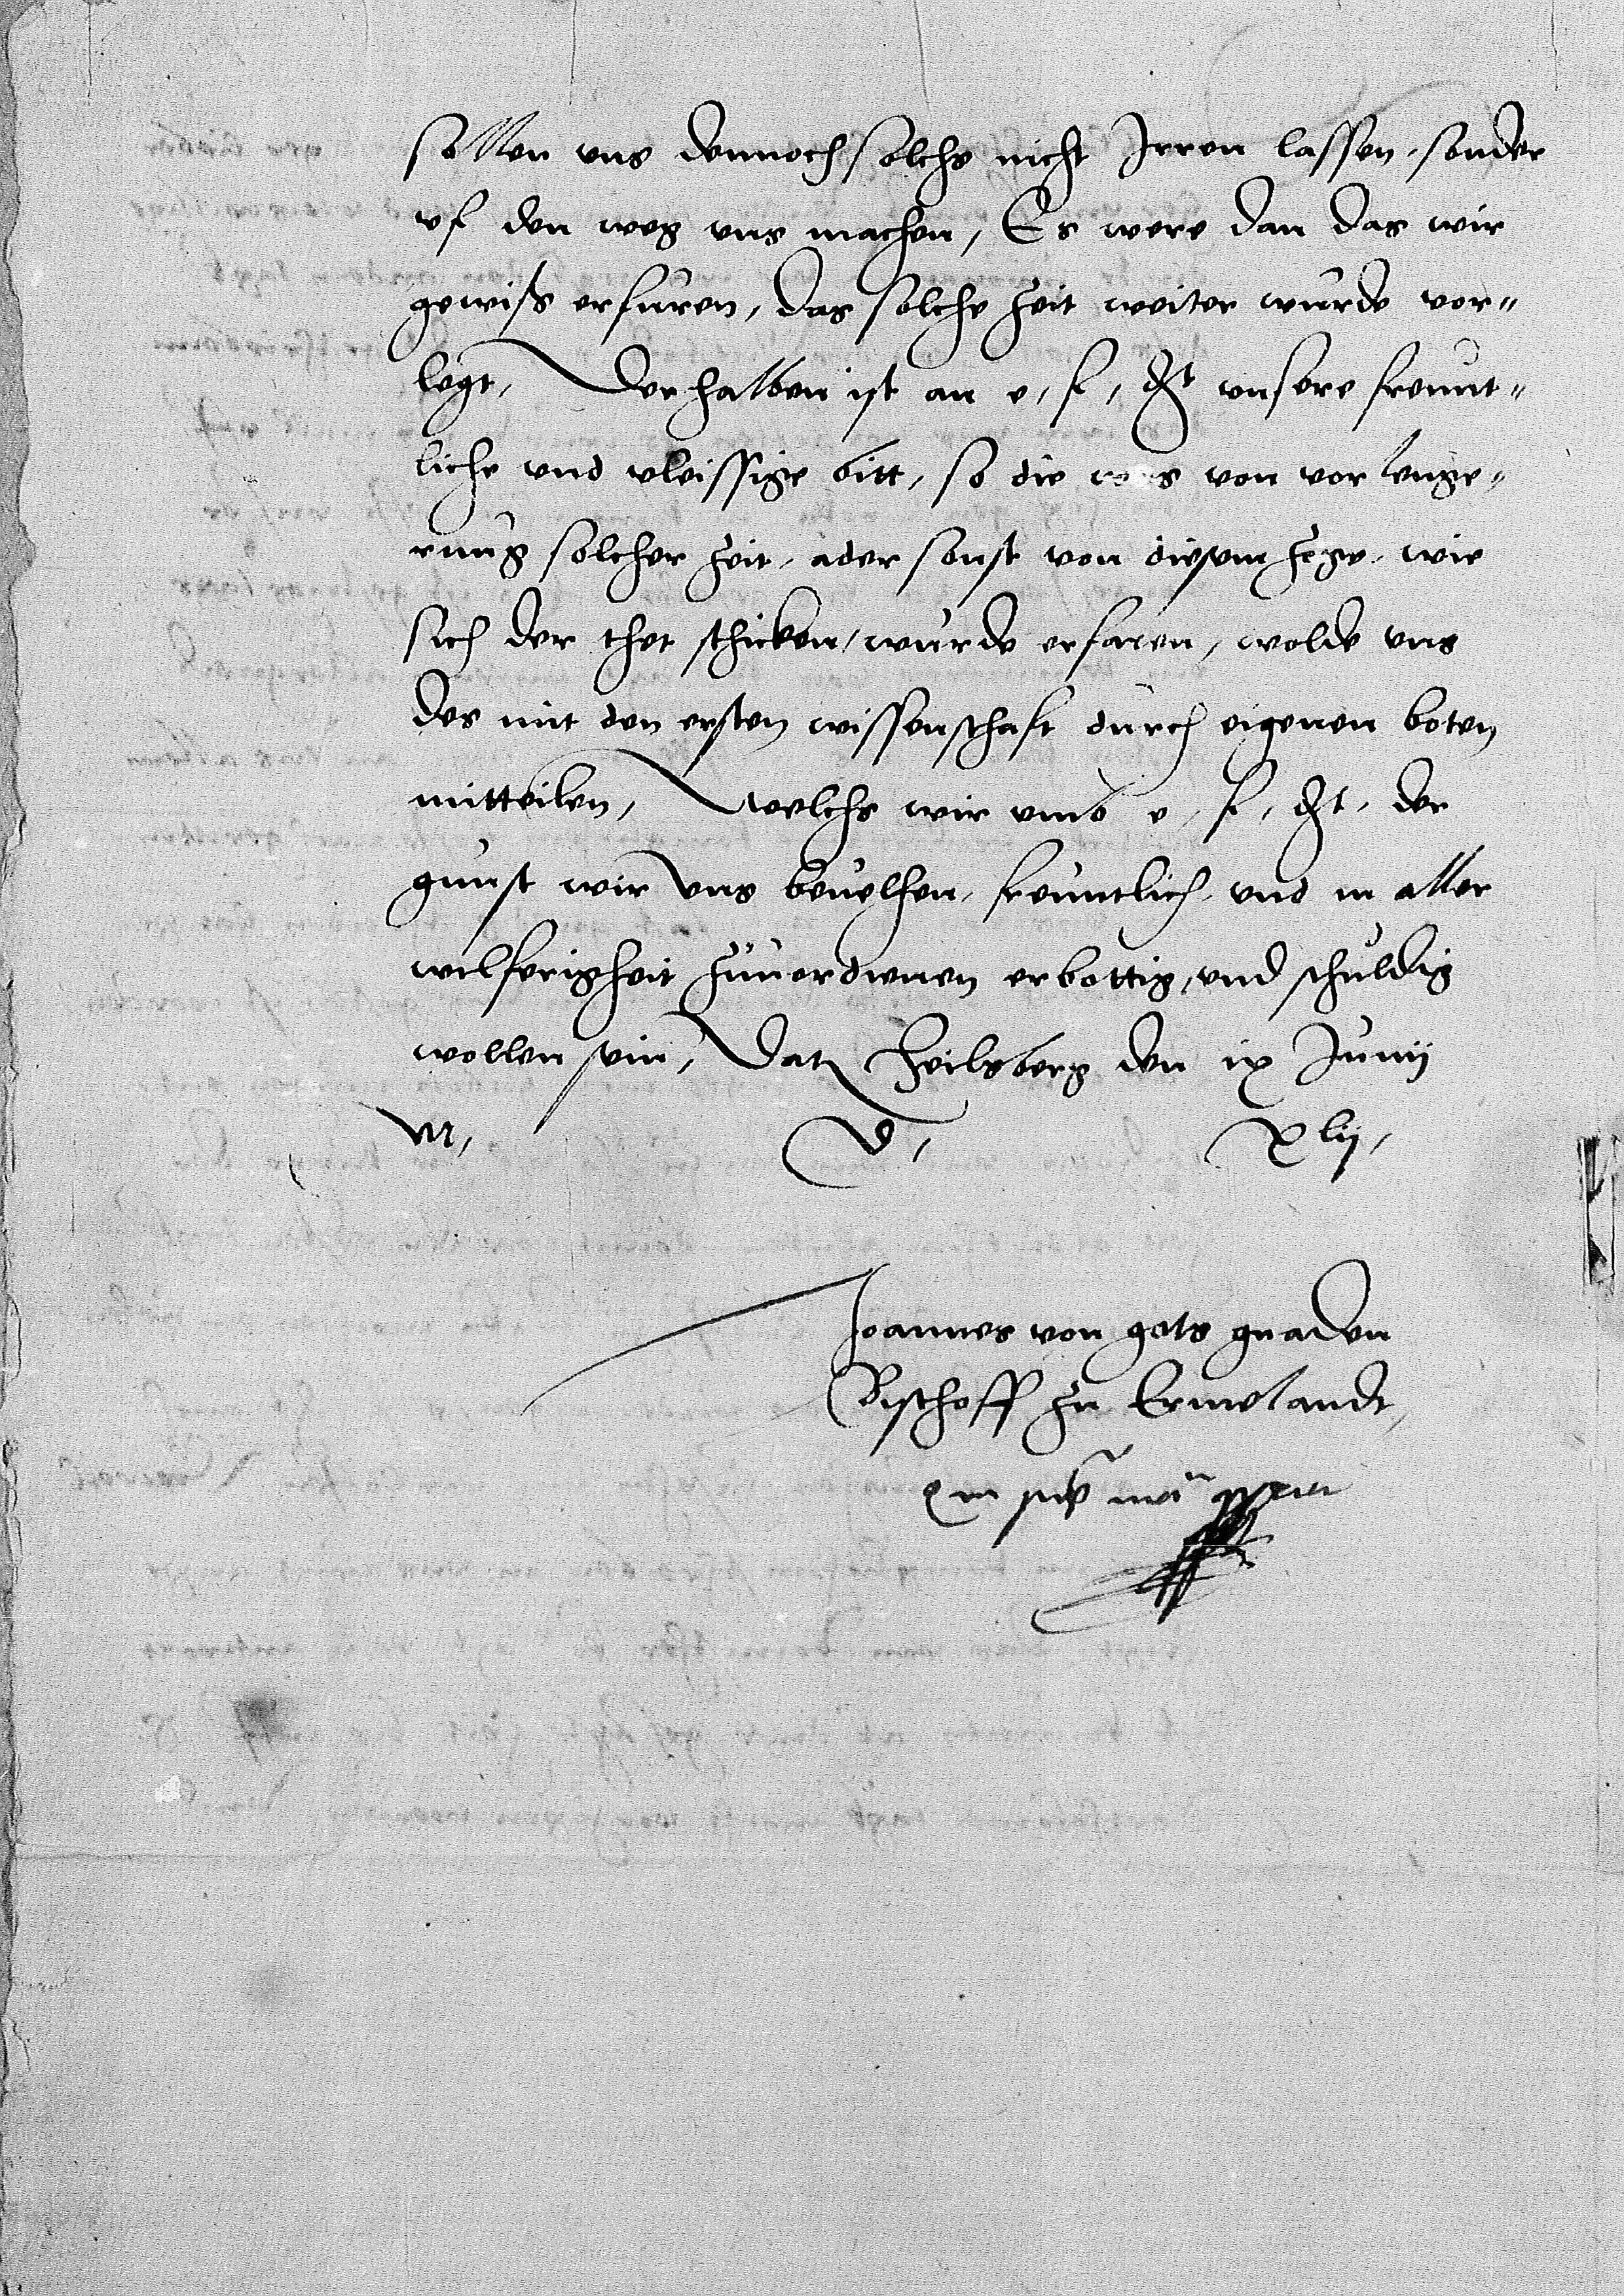 sollen uns dennoch solchs nicht Irren lassen, sonder
vf den weg uns machen, Es were dan das wir
gewiss erfuren, das solche zeit weiter wurde vor-
legt, Derhalben ist an e, f, dt unsere freunt-
liche vnd vleissige bitt, so die von vorlenge-
rung solcher zeit, ader sonst von diesem zoge, wie
sich der thet schicken, wurde erfaren, wolde vns
des mit den ersten wissenschaft durch eigenen boten
mitteilen, Welchs wir vmb e, f, dt, der
gunst wir vns beuelhen, freuntlich, vnd in aller
wilferigheit zuuordienen erbottig, vnd schuldig
wollen sein, Dat Heilsberg den ix Junij
M, D, xlij,
Joannes von gots gnaden
Bischoff zu Ermelandt,